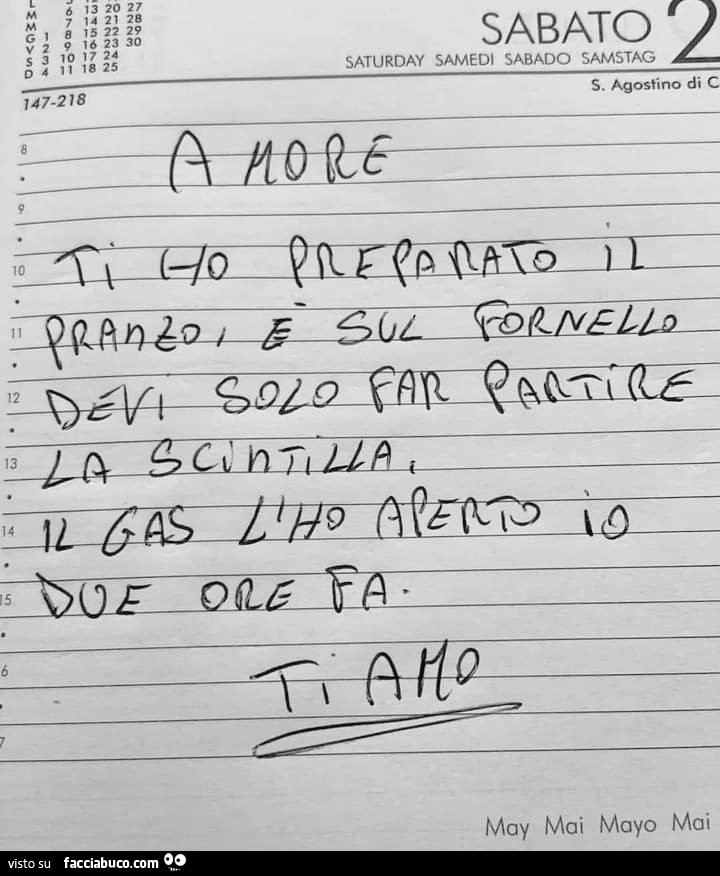 L
M 6 13 20 27
M 7 14 21 28
G 1 8 15 22 29
V 2 9 16 23 30
S 3 10 17 24
D 4 11 18 25
SABATO 2
SATURDAY SAMEDI SABADO SAMSTAG
147-218
S. Agostino di C
8
AMORE
9
10 Ti HO PREPARATO iL
11 PRANZO, È SUL FORNELLO
12 DEVi SOLO FAR PARTiRE
13 LA SCiNTiLLA,
14 IL GAS L'HO APERTO iO
15 DUE ORE FA.
6 Ti AMO
7
May Mai Mayo Mai
visto su facciabuco.com